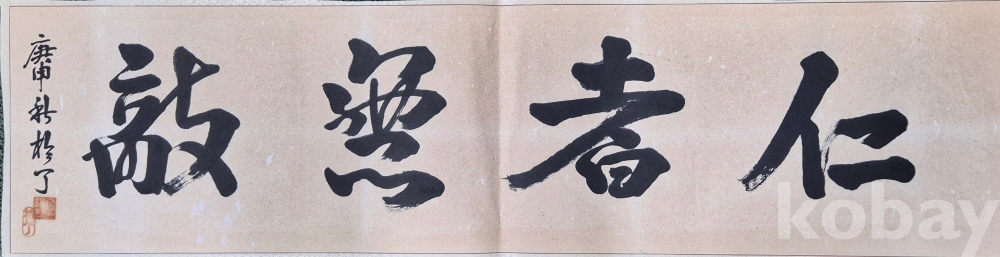 仁者無敵
庚申秋 於 了
kobay